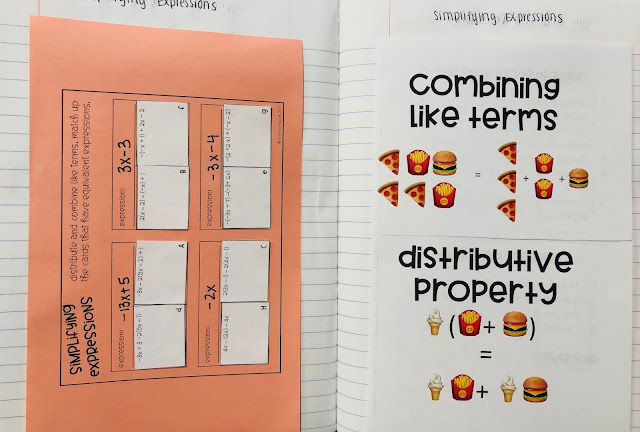 Expressions
SIMPLIFYING
EXPRESSIONS
distribute and combine like terms. match up
the cards that have equivalent expressions.
expression: -13x+5
-3x + 3 - 2(5x - 1) d
-3x - 2(5x - 2) + 1 A
expression: 3x-3
2(x - 2) - (-x) + 1 B
-(-x + 1) + 2x - 2 F
expression: -2x
4x - (2x) - 4x H
2(3x - 1) - 2(4x - 1) C
expression: -3x-4
-(-3x + 7) - (-3 + 6x) e
-(2 + 2x) + (-x - 2) g
Simplifying Expressions
combining
like terms
= + +
distributive
property
( + )
=
+